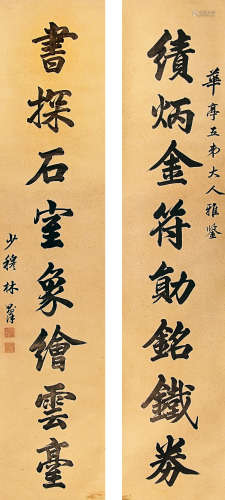 華亭五弟大人雅鑒
績炳金符勛銘鐵券
書探石室象繪雲臺
少穆林